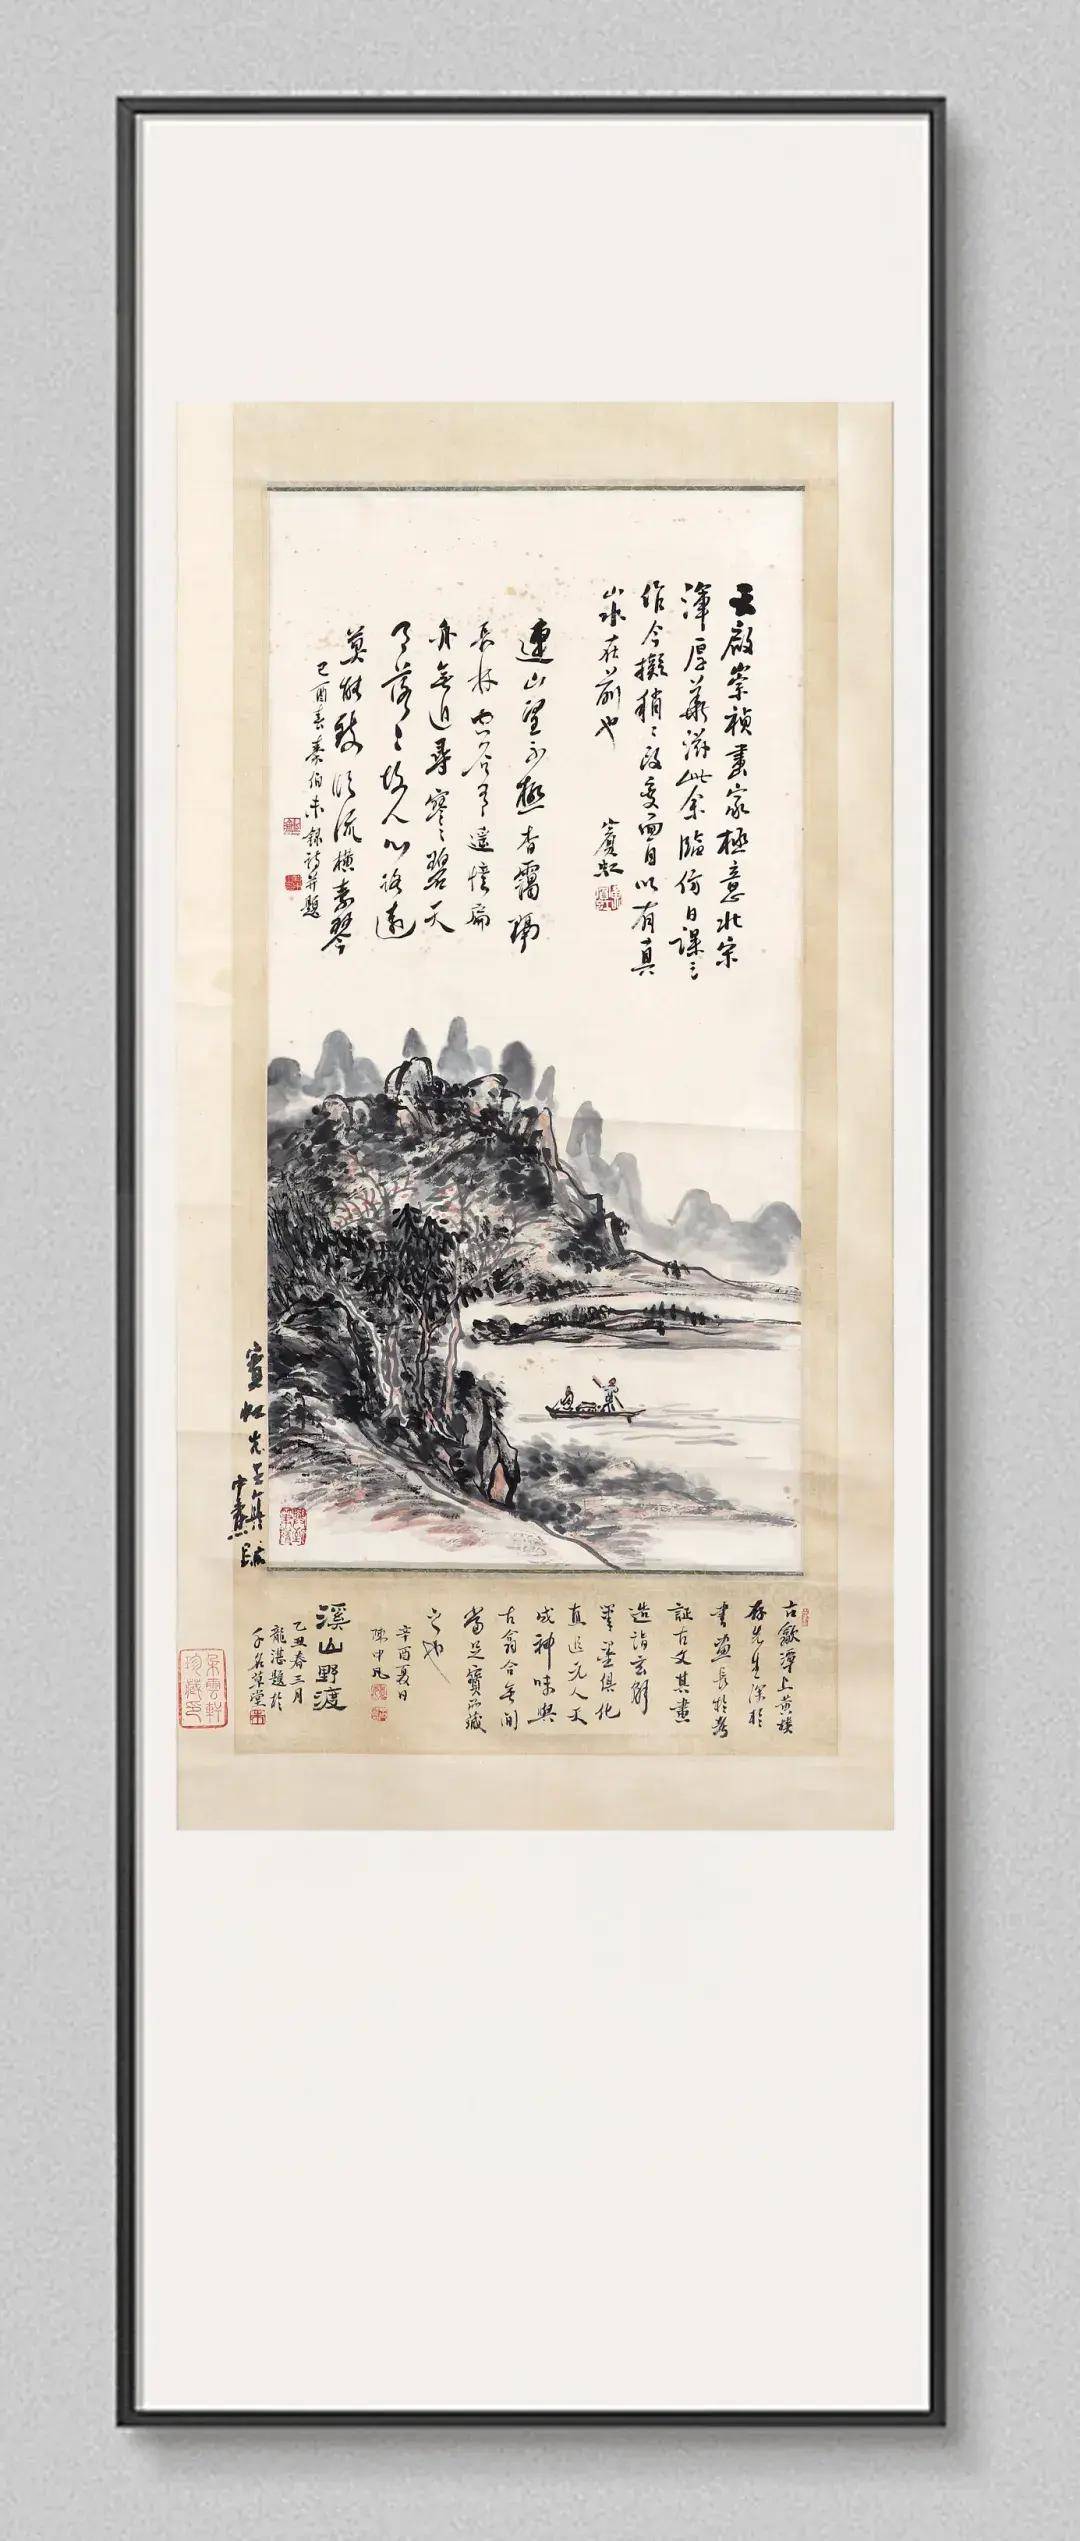 天啟崇禎畫家極意北宋
渾厚華滋此余臨仿日課之
作今擬稍〻改變面目以有真
山水在前也
賓虹
連山望不極杳靄隔
長林空谷有遥情扁
舟無迫尋寥〻碧天
落〻故人心路遠
莫能致順流橫素琴
己酉春秦伯未録詩并題
賓虹先生真蹟
古歙潭上黄樸
存先生深於
書畫長於考
証古文其畫
造詣玄解
筆墨俱化
直追元人天
成神味與
古翕合無間
當足寶藏
之也
辛酉夏日
陳中凡
溪山野渡
乙丑春三月
龍湛題於
千若草堂
朵雲軒
珍藏印